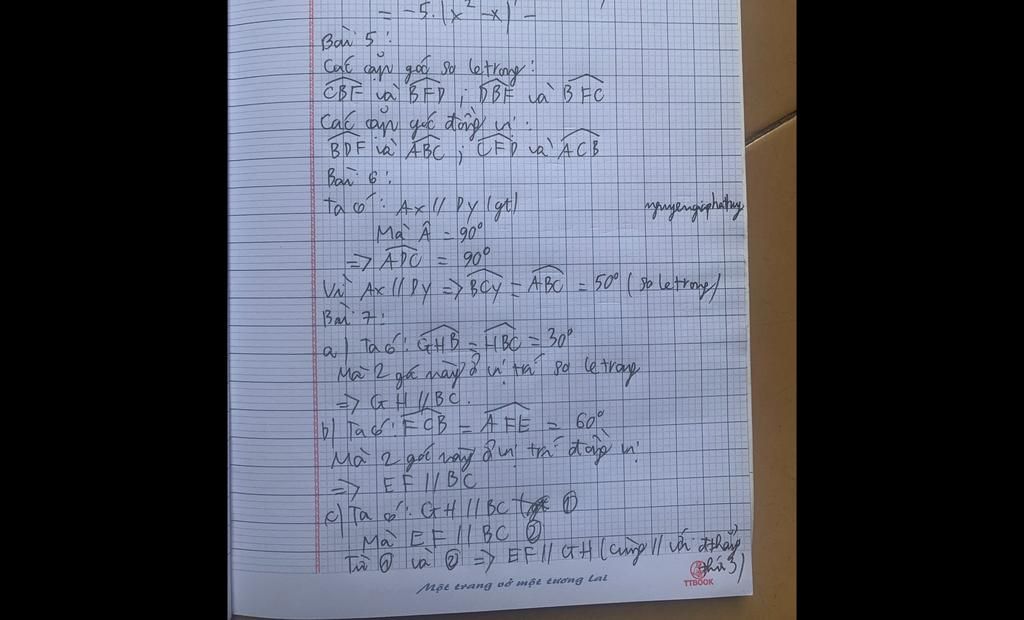 = -5.(x² -x) -
Bài 5:
Các cặp góc so le trong:
CBF và BFD ; DBF và BFC
Các cặp góc đồng vị:
BDF và ABC ; CFD và ACB
Bài 6:
Ta có: Ax // Dy (gt)
nguyengiaphathuy
Mà Â = 90°
=> ADC = 90°
Vì Ax // Dy => BCy = ABC = 50° (so le trong)
Bài 7:
a) Ta có: GHB = HBC = 30°
Mà 2 góc này ở vị trí so le trong
=> GH // BC.
b) Ta có: FCB = AFE = 60°
Mà 2 góc này ở vị trí đồng vị
=> EF // BC
c) Ta có: GH // BC ①
Mà EF // BC ②
Từ ① và ② => EF // GH (cùng // với đt thẳng
thứ 3)
Một trang vở một tương lai
TTBOOK